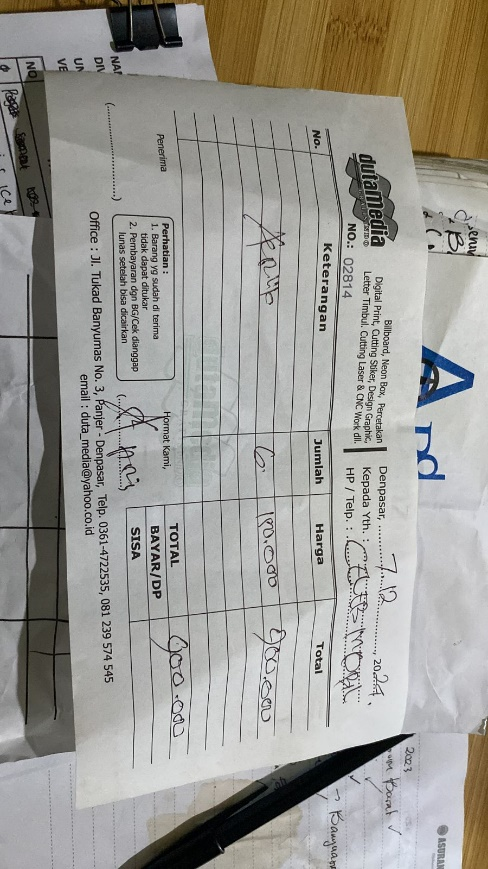 dutamedia
NO.: 02814
Billboard, Neon Box, Percetakan
Digital Print, Cutting Stiker, Design Graphic,
Letter Timbul. Cutting Laser & CNC Work dll.
Denpasar, 7-12 2024.
Kepada Yth. :
HP / Telp. :
No. Keterangan Jumlah Harga Total
6 900.000
TOTAL 900.000
BAYAR/DP
SISA
Penerima
(....................)
Perhatian :
1. Barang yg sudah di terima
tidak dapat ditukar
2. Pembayaran dgn BG/Cek dianggap
lunas setelah bisa dicairkan
Hormat Kami,
Office : Jl. Tukad Banyumas No. 3, Panjer - Denpasar, Telp. 0361-4722535, 081 239 574 545
email : duta_media@yahoo.co.id
NO
2023
ASURAN